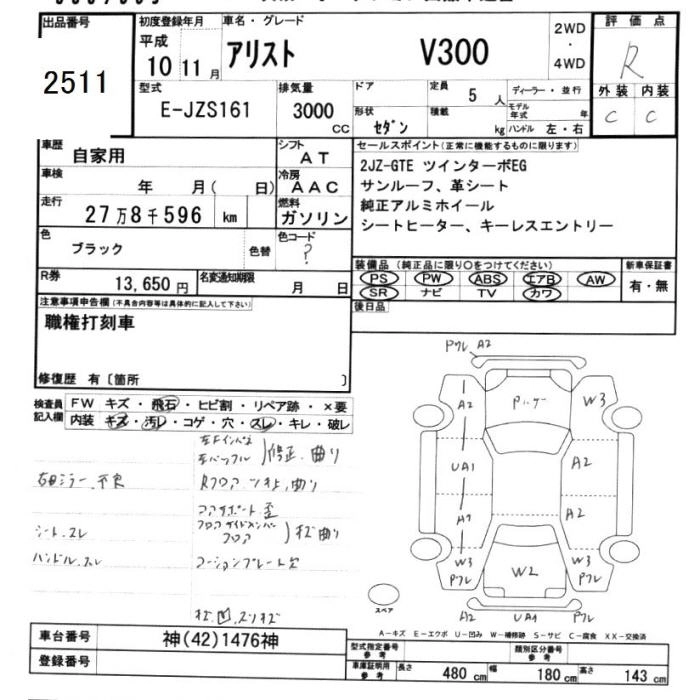 出品番号 初度登録年月 車名・グレード 2WD・4WD 評価点
2511 平成 10 11月 アリスト V300 R
型式 排気量 ドア 定員 5人 ディーラー・並行 外装 内装
E-JZS161 3000cc 形状 セダン 積載 kg モデル年式 年 ハンドル 左・右 C C
車歴 自家用 シフト AT セールスポイント(正常に機能するものに限ります)
車検 年 月( 日) 冷房 AAC 2JZ-GTE ツインターボEG
サンルーフ、革シート
走行 27万8千596 km 燃料 ガソリン 純正アルミホイール
シートヒーター、キーレスエントリー
色 ブラック 色替 色コード ?
装備品(純正品に限り○をつけてください) 新車保証書
R券 13,650円 名変通知期限 月 日 PS PW ABS エアB AW 有・無
SR ナビ TV カワ
注意事項申告欄(不具合内容等は具体的に記入して下さい) 後日品
職権打刻車
修復歴 有〔箇所 〕
検査員記入欄 FW キズ・飛石・ヒビ割・リペア跡・×要
内装 キズ・汚レ・コゲ・穴・スレ・キレ・破レ
ワレ A2
A2 W3
UA1 A2
A2
W3 ワレ W2 W3 ワレ
A2 UA1 A2
修正、曲り
シート、スレ
ハンドル、スレ
コーションプレート欠
スペア
A-キズ E-エクボ U-凹み W-補修跡 S-サビ C-腐食 XX-交換済
車台番号 神(42)1476神 型式指定番号 参考 類別区分番号 参考
登録番号 車庫証明用 参考 長さ 480cm 幅 180cm 高さ 143cm